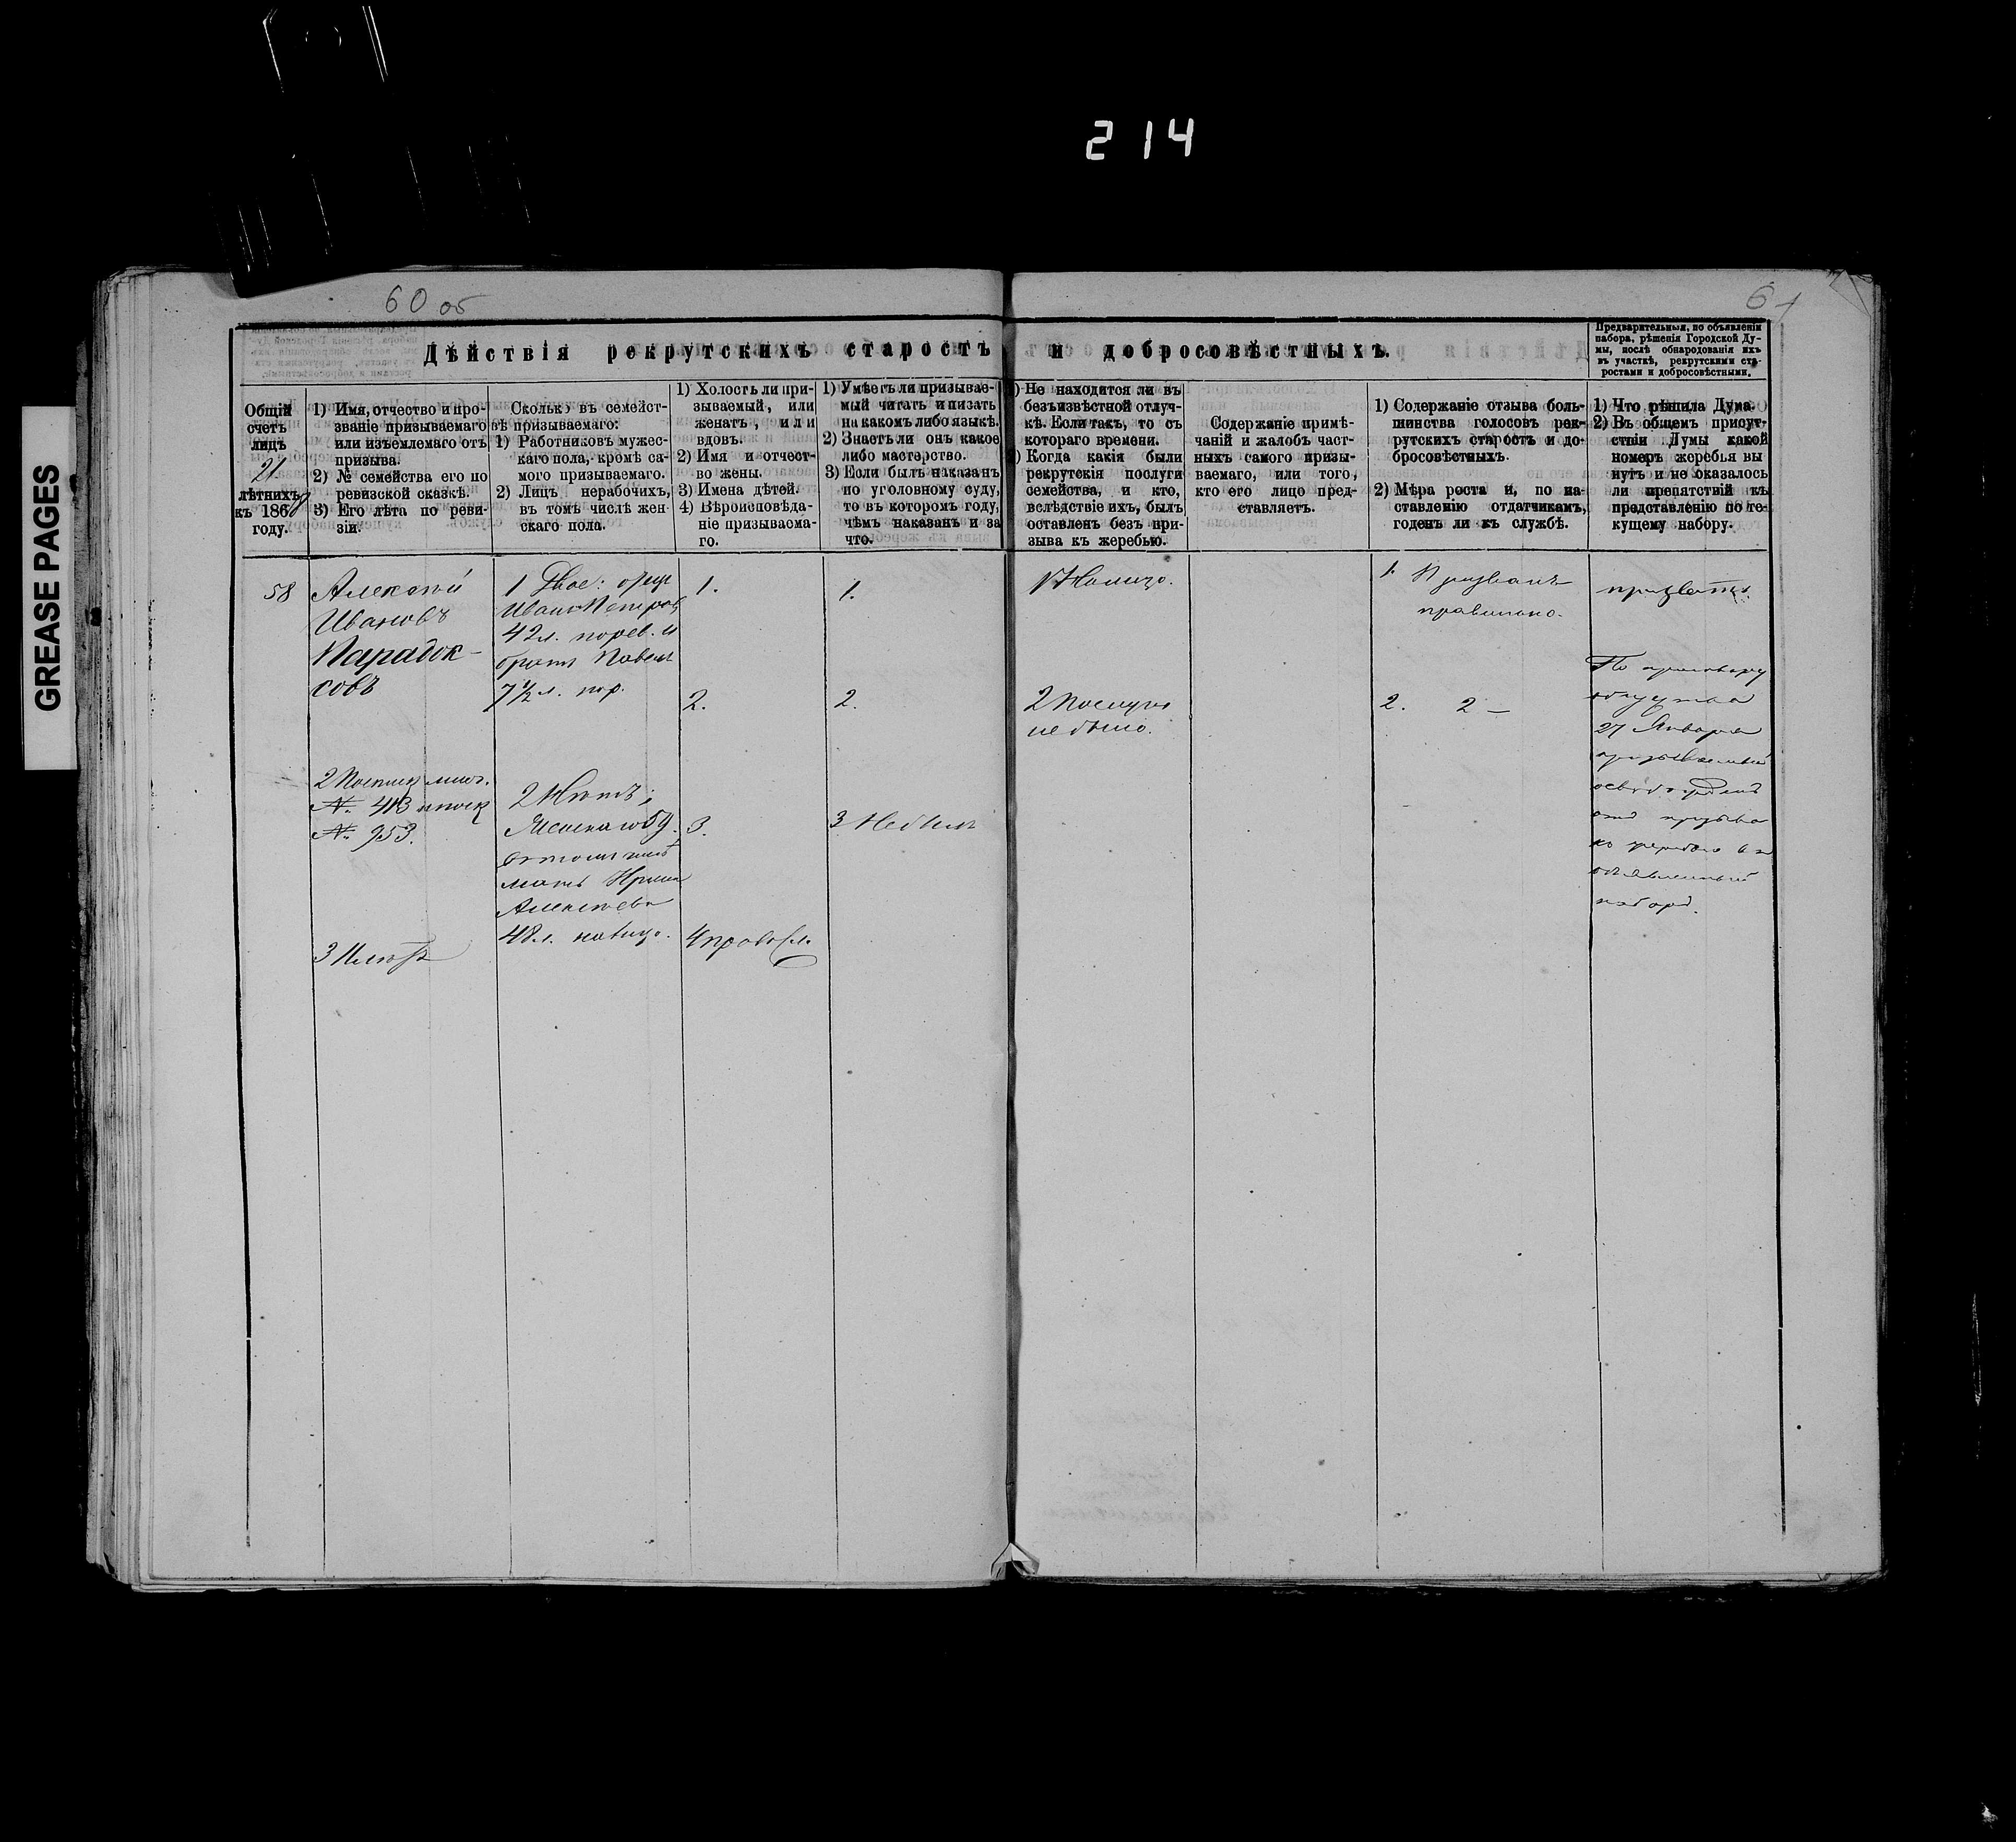 214
GREASE PAGES
60 об
61
Дѣйствія рекрутскихъ старостъ и добросовѣстныхъ.
Предварительныя, по объявленіи
набора, рѣшенія Городской Ду-
мы, послѣ обнародованія ихъ
въ участкѣ, рекрутскими ста-
ростами и добросовѣстными.
Общій
счетъ
лицъ
21
лѣтнихъ
къ 1868
году.
1) Имя, отчество и про-
званіе призываемаго
или изъемлемаго отъ
призыва.
2) № семейства его по
ревизской сказкѣ.
3) Его лѣта по реви-
зіи.
Сколько въ семейст-
вѣ призываемаго:
1) Работниковъ мужес-
каго пола, кромѣ са-
мого призываемаго.
2) Лицъ нерабочихъ,
въ томъ числѣ жен
скаго пола.
1) Холостъ ли при-
зываемый, или
женатъ, или
вдовъ.
2) Имя и отчест-
во жены.
3) Имена дѣтей.
4) Вѣроисповѣда-
ніе призываема-
го.
1) Умѣетъ ли призывае-
мый читать и писать
на какомъ либо языкѣ.
2) Знаетъ ли онъ какое
либо мастерство.
3) Если былъ наказанъ
по уголовному суду,
то въ которомъ году,
чѣмъ наказанъ и за
что.
1) Не находится ли въ
безъизвѣстной отлуч-
кѣ. Если такъ, то съ
котораго времени.
2) Когда какія были
рекрутскія послуги
семейства, и кто,
вслѣдствіе ихъ, былъ
оставленъ безъ при-
зыва къ жеребью.
Содержаніе примѣ-
чаній и жалобъ част-
ныхъ самого призы-
ваемаго, или того,
кто его лицо пред-
ставляетъ.
1) Содержаніе отзыва боль-
шинства голосовъ рек-
рутскихъ старостъ и до-
бросовѣстныхъ.
2) Мѣра роста и, по на-
ставленію отдатчикамъ,
годенъ ли къ службѣ.
1) Что рѣшила Дума.
2) Въ общемъ присут-
ствіи Думы какой
номеръ жеребья вы
нутъ и не оказалось
ли препятствій къ
представленію по те-
кущему набору.
58
Алексѣй
Ивановъ
Парадок-
совъ
№ 413
№ 953.
3
1 Двое: отецъ
Иванъ Петровъ
42 л. по рев. и
братъ Павелъ
7 1/2 л. по р.
2 Нѣтъ;
Женскаго 59.
въ томъ числѣ
мать Ирина
Алексѣева
48 л. на лицо.
1.
2.
3.
4 правосл.
1.
2.
3 Не былъ
1 На лицо.
2 Послугъ
не было.
1. Призванъ
правильно.
2. 2 —
призвать.
По приговору
общества
27 Января
призываемый
освобожденъ
отъ призыва
къ жеребью въ
объявленный
наборъ.